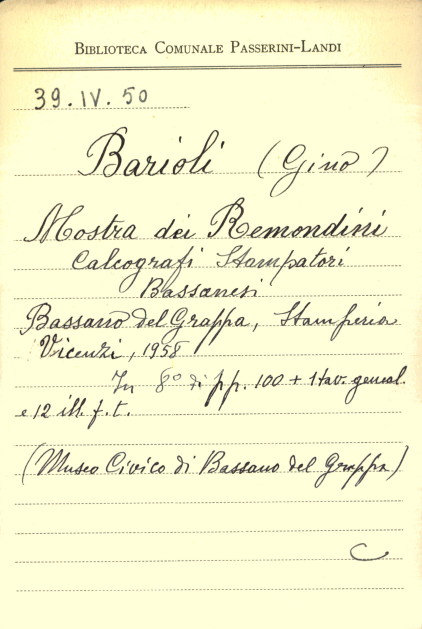 BIBLIOTECA COMUNALE PASSERINI-LANDI
39.IV.50
Barioli (Gino)
Mostra dei Remondini
Calcografi Stampatori
Bassanesi
Bassano del Grappa, Stamperia
Vicenzi, 1958
In 8° di pp. 100 + 1 tav. geneal.
e 12 ill. f. t.
(Museo Civico di Bassano del Grappa)
C